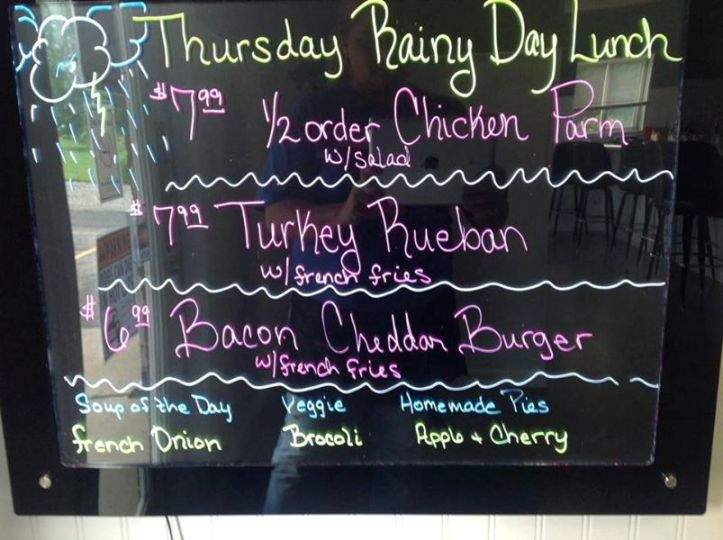 Thursday Rainy Day Lunch
$7.99 1/2 order Chicken Parm
w/salad
$7.99 Turkey Rueban
w/french fries
$6.99 Bacon Cheddar Burger
w/french fries
Soup of the Day Veggie Homemade Pies
french Onion Brocoli Apple + Cherry